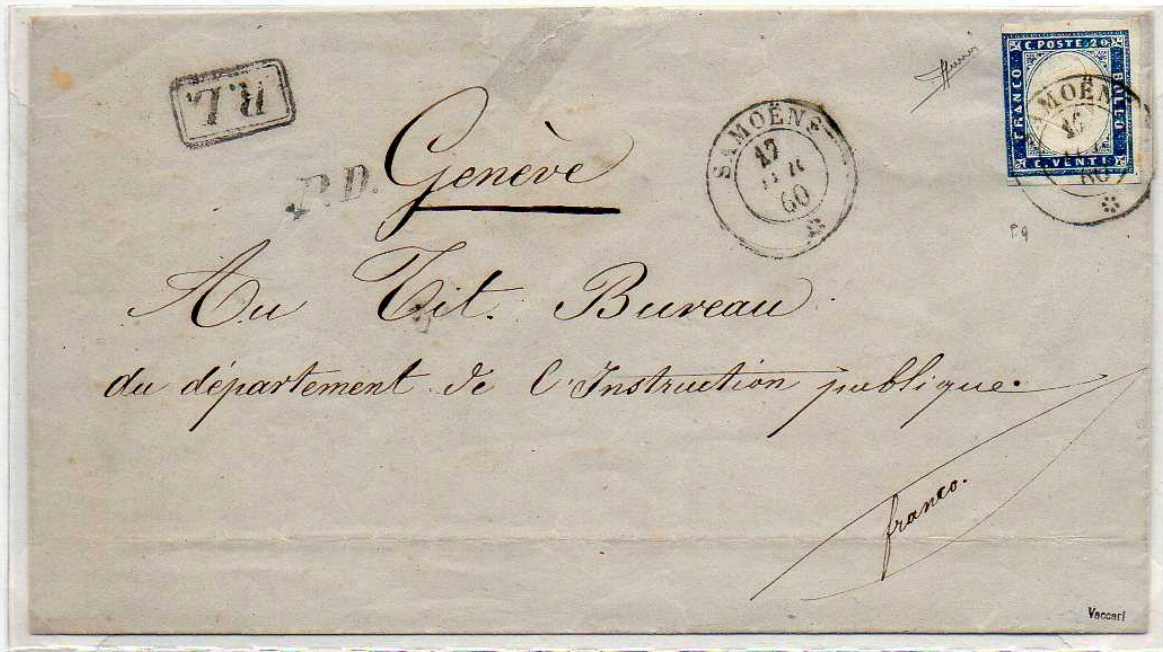 R.L.
P.D.
Genève
SAMOËNS
17
60
C. POSTE 20
FRANCO
BOLLO
C. VENTI
SAMOËN
60
Au Tit. Bureau
du département de l'Instruction publique.
franco.
Vaccari